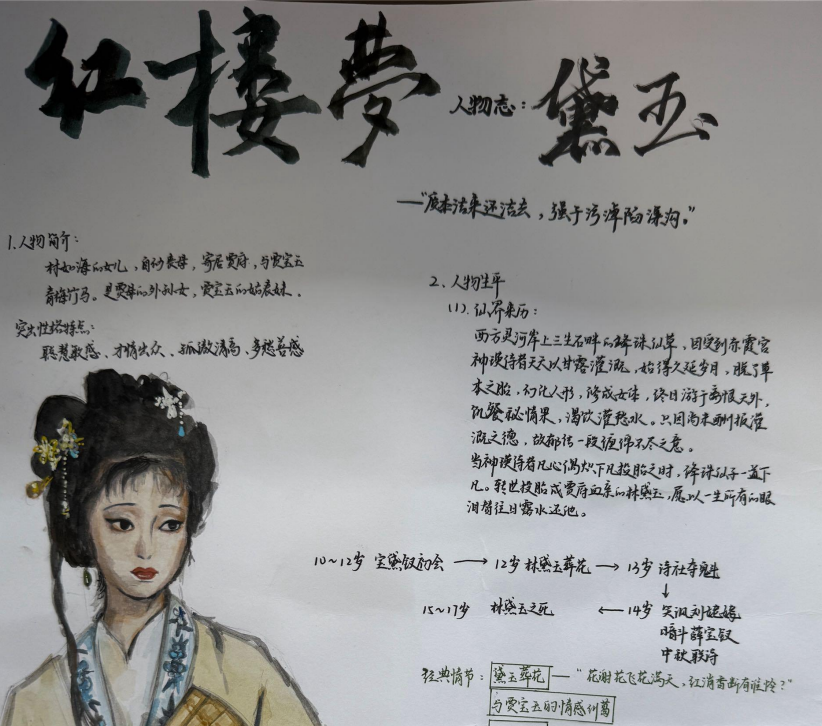 红楼夢
人物志：黛玉
—"质本洁来还洁去，强于污淖陷渠沟。"
1.人物简介：
林如海的女儿，自幼丧母，寄居贾府，与贾宝玉
青梅竹马。是贾母的外孙女，贾宝玉的姑表妹。
突出性格特点：
聪慧敏感、才情出众、孤傲清高、多愁善感
2、人物生平
(1).仙界来历：
西方灵河岸上三生石畔的绛珠仙草，因受到赤霞宫
神瑛侍者天天以甘露灌溉，始得久延岁月，脱了草
木之胎，幻化人形，修成女体，终日游于离恨天外，
饥餐秘情果，渴饮灌愁水。只因尚未酬报灌
溉之德，故郁结一段缠绵不尽之意。
当神瑛侍者凡心偶炽下凡投胎之时，绛珠仙子一并下
凡。转世投胎成贾府血亲的林黛玉，愿以一生所有的眼
泪替往日露水还他。
10~12岁 宝黛钗初会 → 12岁 林黛玉葬花 → 13岁 诗社夺魁
↓
15~17岁 林黛玉之死 ← 14岁 笑讽刘姥姥
暗斗薛宝钗
中秋联诗
经典情节：黛玉葬花 —"花谢花飞花满天，红消香断有谁怜？"
与贾宝玉的情感纠葛